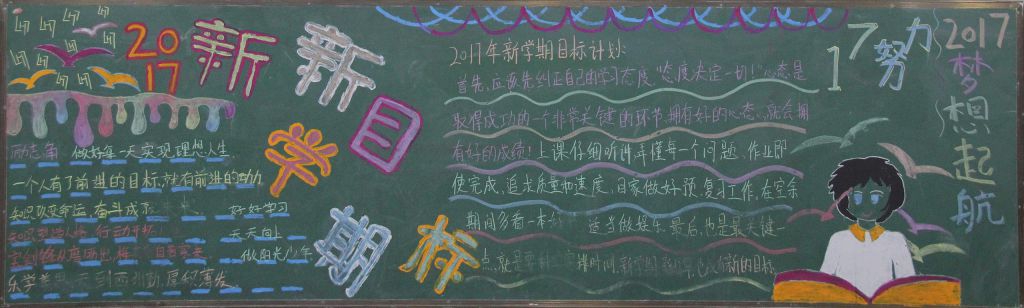 2017
新
新
学
目
期
标
励志角 做好每一天实现理想人生
一个人有了前进的目标,就有前进的动力
知识改变命运,奋斗成
好好学习
天天向上
做阳光少年
厚积薄发
2017年新学期目标计划:
首先,应该先纠正自己的学习态度,“态度决定一切!”心态是
取得成功的一个非常关键的环节,拥有好的心态,就会拥
有好的成绩!上课仔细听讲弄懂每一个问题,作业即
使完成,追求质量和速度,回家做好预,复习工作,在空余
期间多看一本 适当做娱乐.最后,也是最关键一
点,就是要 时间,新学期 新的目标
17努力
2017
梦想起航